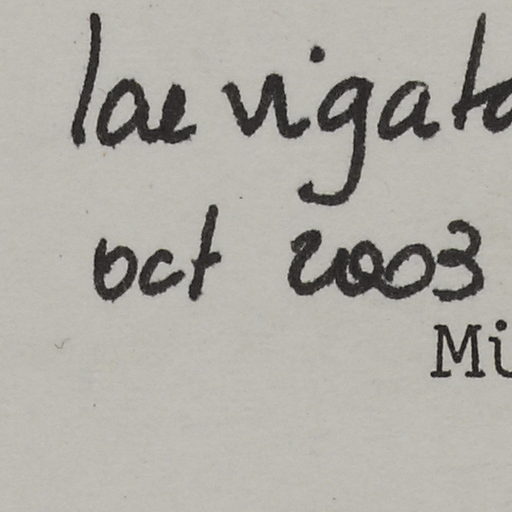 laevigata
oct 2003
Mi